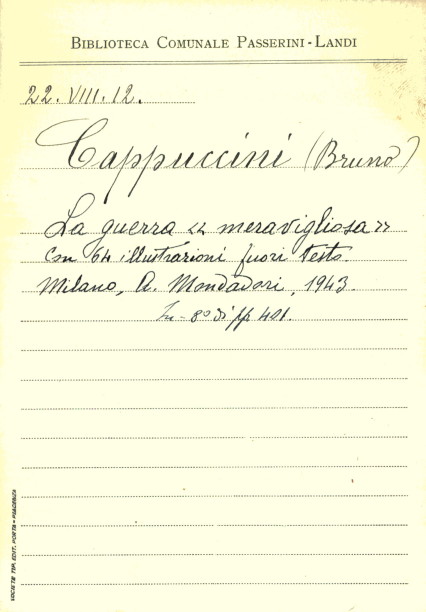 BIBLIOTECA COMUNALE PASSERINI-LANDI
22. VIII. 12.
Cappuccini (Bruno)
La guerra << meravigliosa >>
Con 64 illustrazioni fuori testo.
Milano, A. Mondadori, 1943.
In - 8° di pp 401.
SOCIETÀ TIP. EDIT. PORTA - PIACENZA